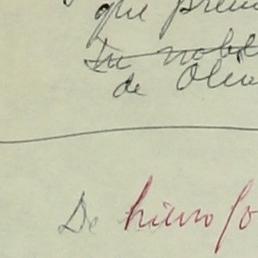 que prem
Su nobl
de Oliv
De hierofo